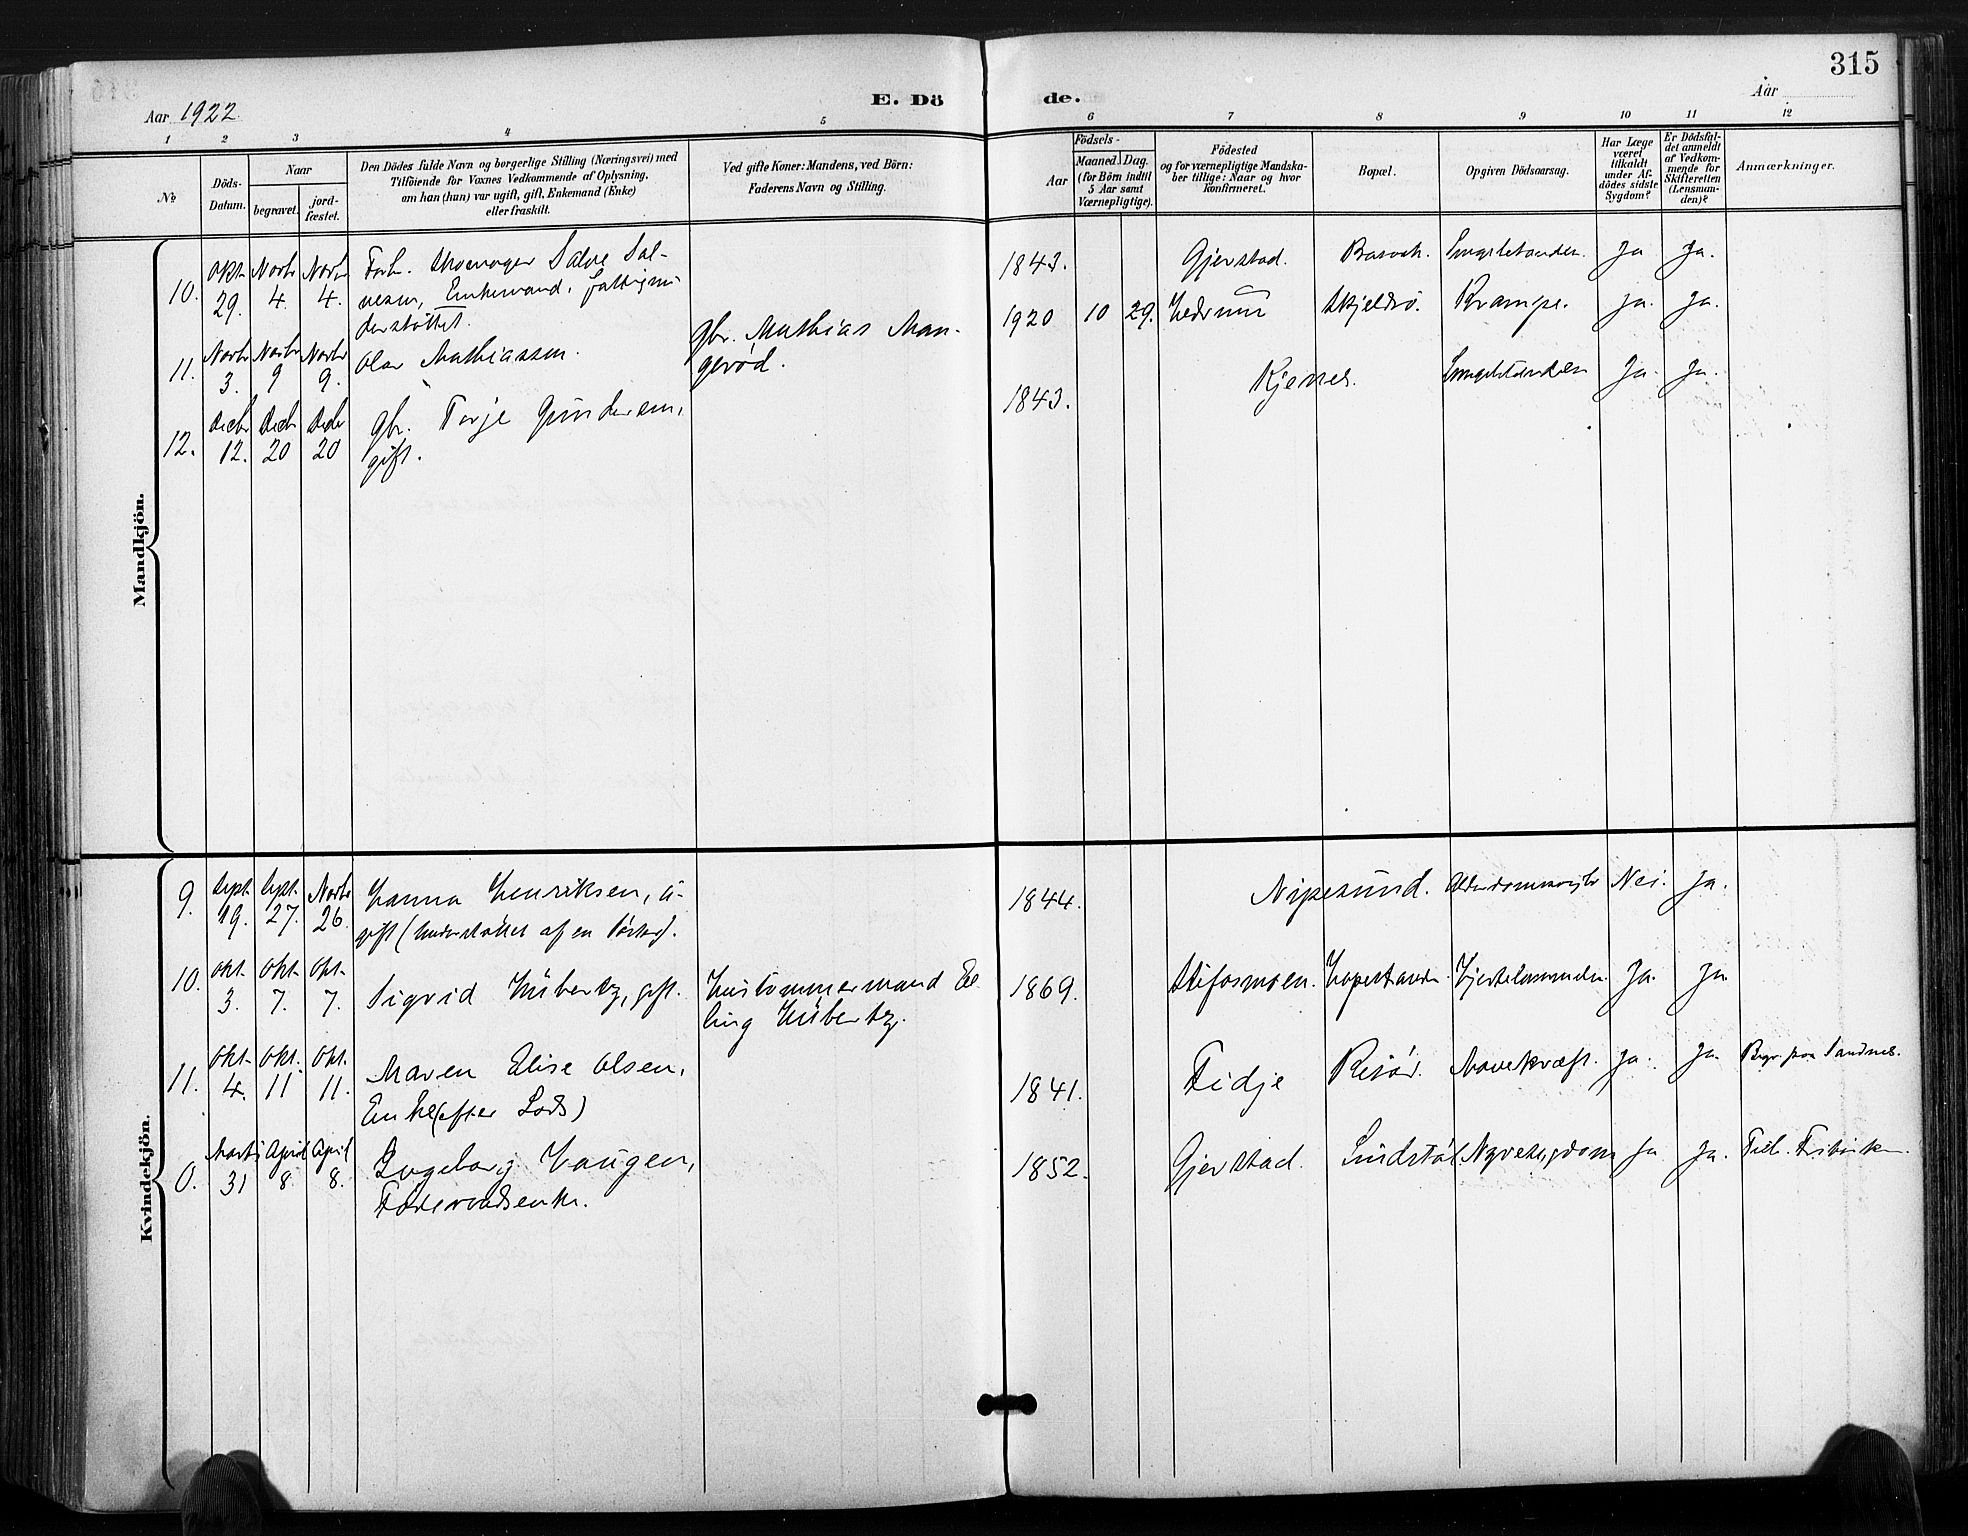 315
E. Döde.
Aar 1922.
Aar
1 2 3 4 5 6 7 8 9 10 11 12
No
Döds-
Datum.
Naar
begravet.
jord-
fæstet.
Den Dödes fulde Navn og borgerlige Stilling (Næringsvei) med
Tilföiende for Voxnes Vedkommende af Oplysning,
om han (hun) var ugift, gift, Enkemand (Enke)
eller fraskilt.
Ved gifte Koner: Mandens, ved Börn:
Faderens Navn og Stilling.
Födsels-
Aar
Maaned
Dag.
(for Börn indtil
5 Aar samt
Værnepligtige).
Födested
og for værnepligtige Mandska-
ber tillige: Naar og hvor
konfirmeret.
Bopæl.
Opgiven Dödsaarsag.
Har Læge
været
tilkaldt
under Af-
dödes sidste
Sygdom?
Er Dödsfal-
det anmeldt
af Vedkom-
mende for
Skifteretten
(Lensman-
den)?
Anmærkninger.
Mandkjön.
10. Okt. 29. Novbr 4. Novbr 4. Forh. Skomager Salve Sal-
vesen, Enkemand, fattigun-
derstöttet.
1843. Gjerstad. Ja Ja.
11. Novbr 3. Novbr 9 Novbr 9. Olav Mathiassen. gbr. Mathias Man-
gerød.
1920 10 29. Skjeldsö. Krampe. Ja. Ja.
12. Decbr 12. Decbr 20 Decbr 20 gbr. Terje Gundersen,
gift.
1843. Kjenes. Ja. Ja.
Kvindekjön.
9. Sept. 19. Sept. 27. Novbr 26. Hanna Henriksen, u-
gift (understöttet af en Söster).
1844. Nipesund. Nei. Ja.
10. Okt. 3. Okt. 7. Okt. 7. Sigrid Hübertz, gift. Hustömmermand El
ling Hübertz.
1869. Stifosmoen. Ja. Ja
11. Okt. 4. Okt. 11 Okt. 11. Maren Elise Olsen,
Enke (efter Lods)
1841. Fidje Risör. Mavekræft. Ja. Ja. Begr. paa Sandnes.
0. Marts 31 April 8 April 8. Ingeborg Haugen,
Föderaadsenke.
1852. Gjerstad. Lindstöl Nyresygdom Ja Ja.